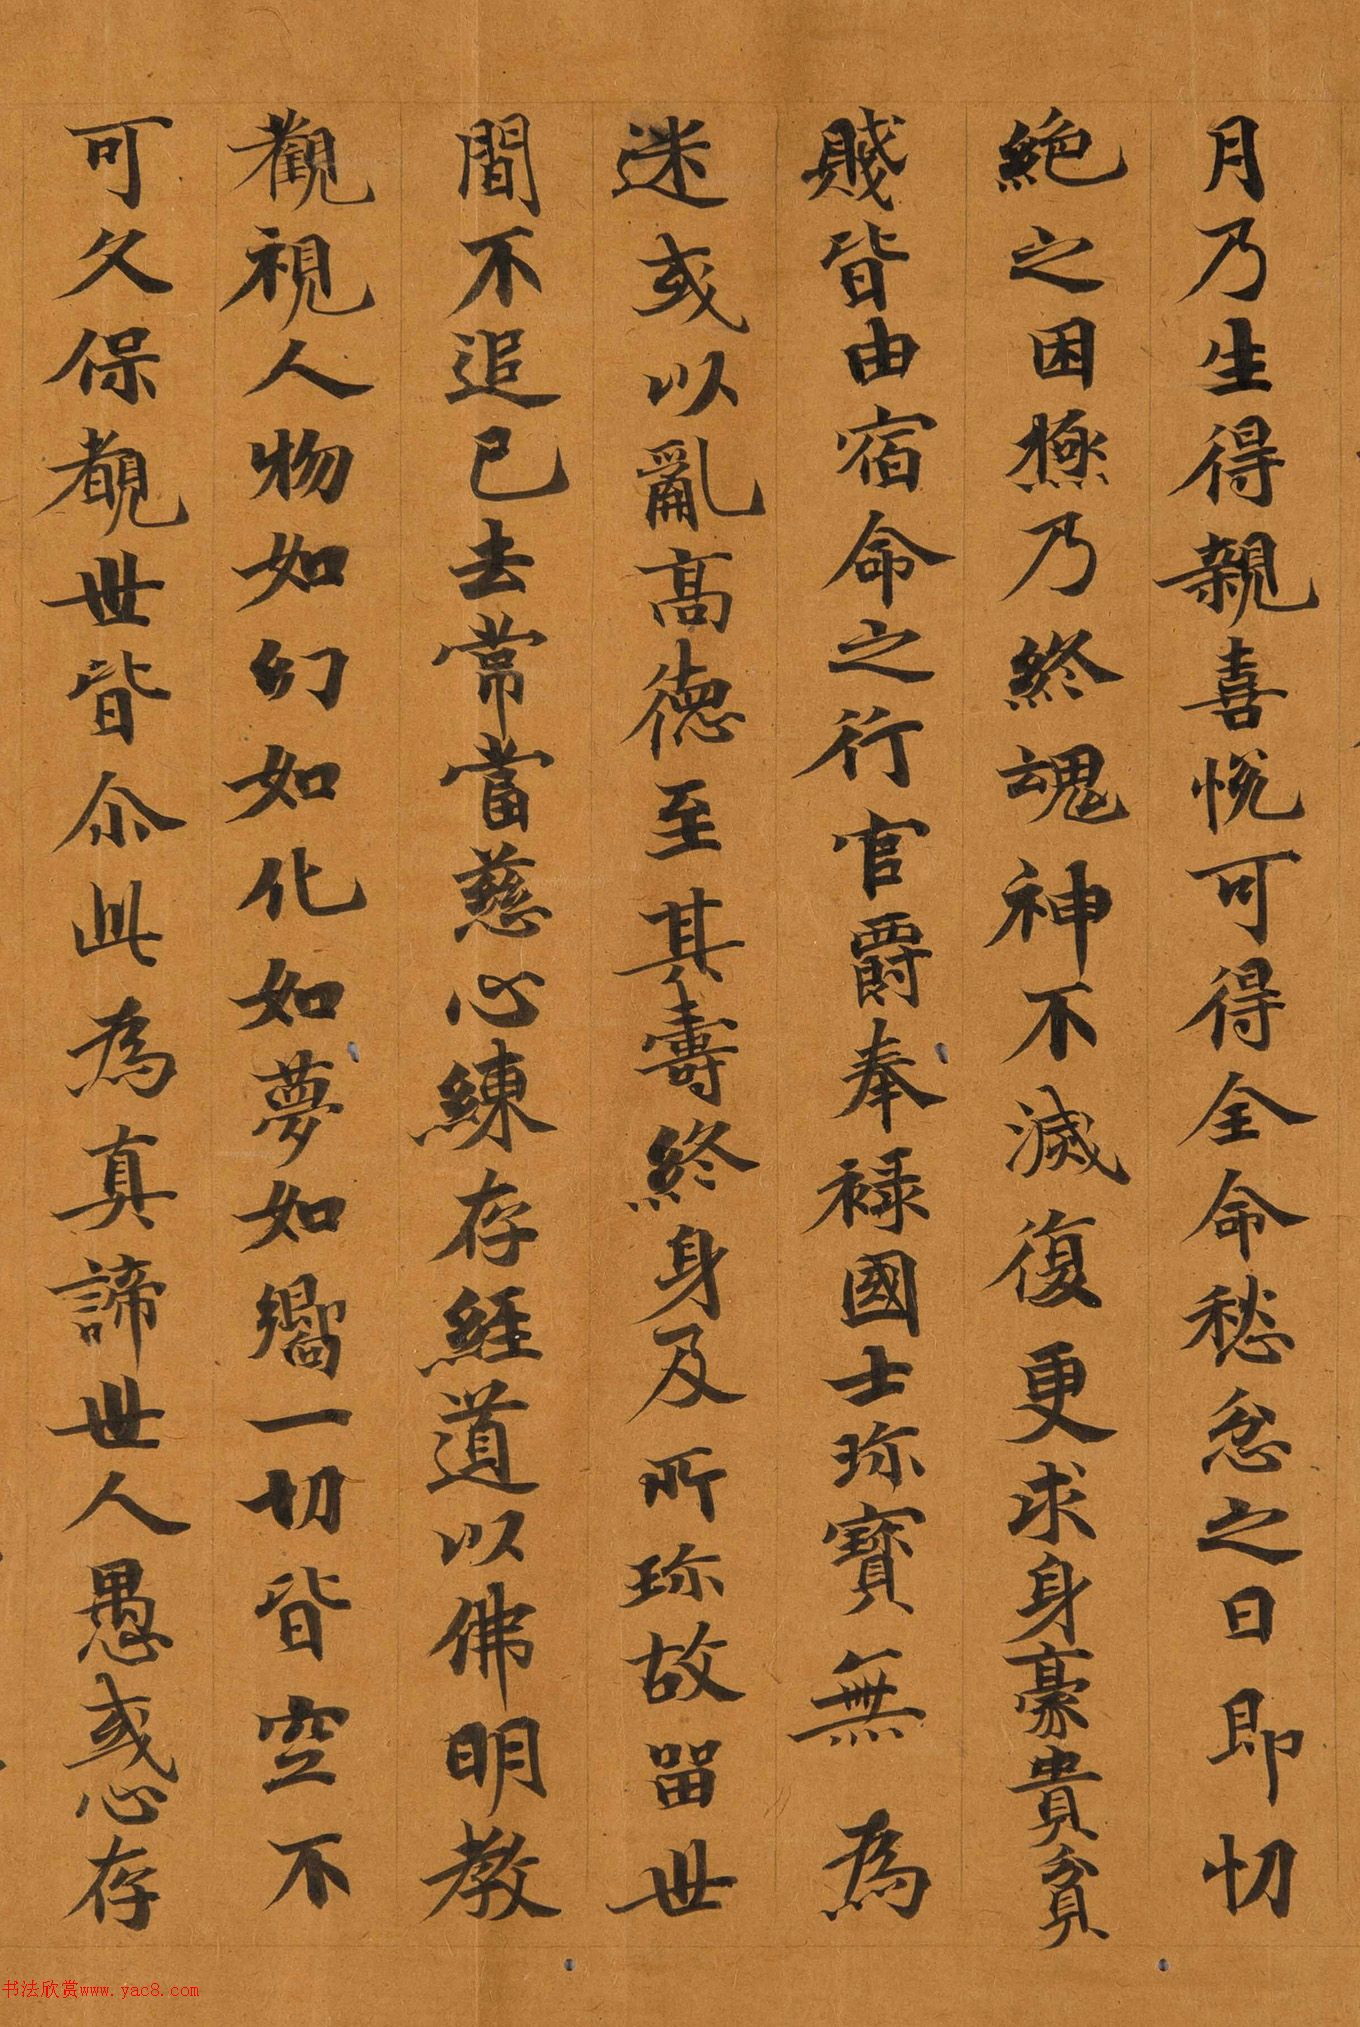 月乃生得親喜悅可得全命愁忿之日即切
絶之困極乃終魂神不滅復更求身豪貴貧
賤皆由宿命之行官爵奉禄國士珎寶無為
迷或以亂高德至其壽終身及所珎故留世
間不追已去常當慈心練存經道以佛明教
觀視人物如幻如化如夢如嚮一切皆空不
可久保覩世皆尒此為真諦世人愚或心存
书法欣赏www.yac8.com